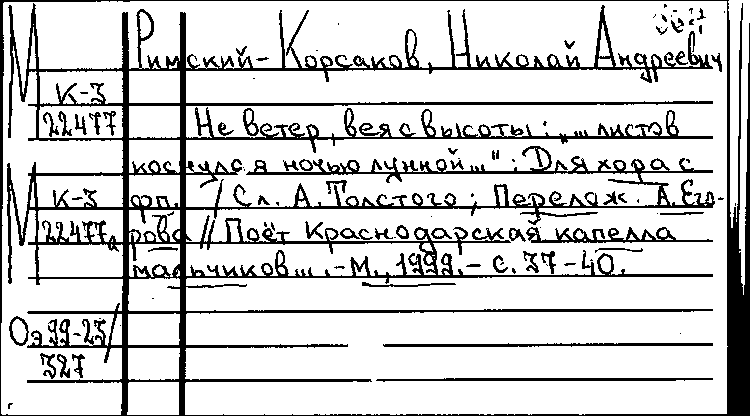 М Римский-Корсаков, Николай Андреевич
К-3
22477 Не ветер, вея с высоты: „... листов
коснулся ночью лунной...“: Для хора с
М К-3 фп. / Сл. А. Толстого; Перелож. А. Его-
22477а рова // Поёт Краснодарская капелла
мальчиков... .-М., 1999.- с. 37-40.
Оэ 99-23/
327